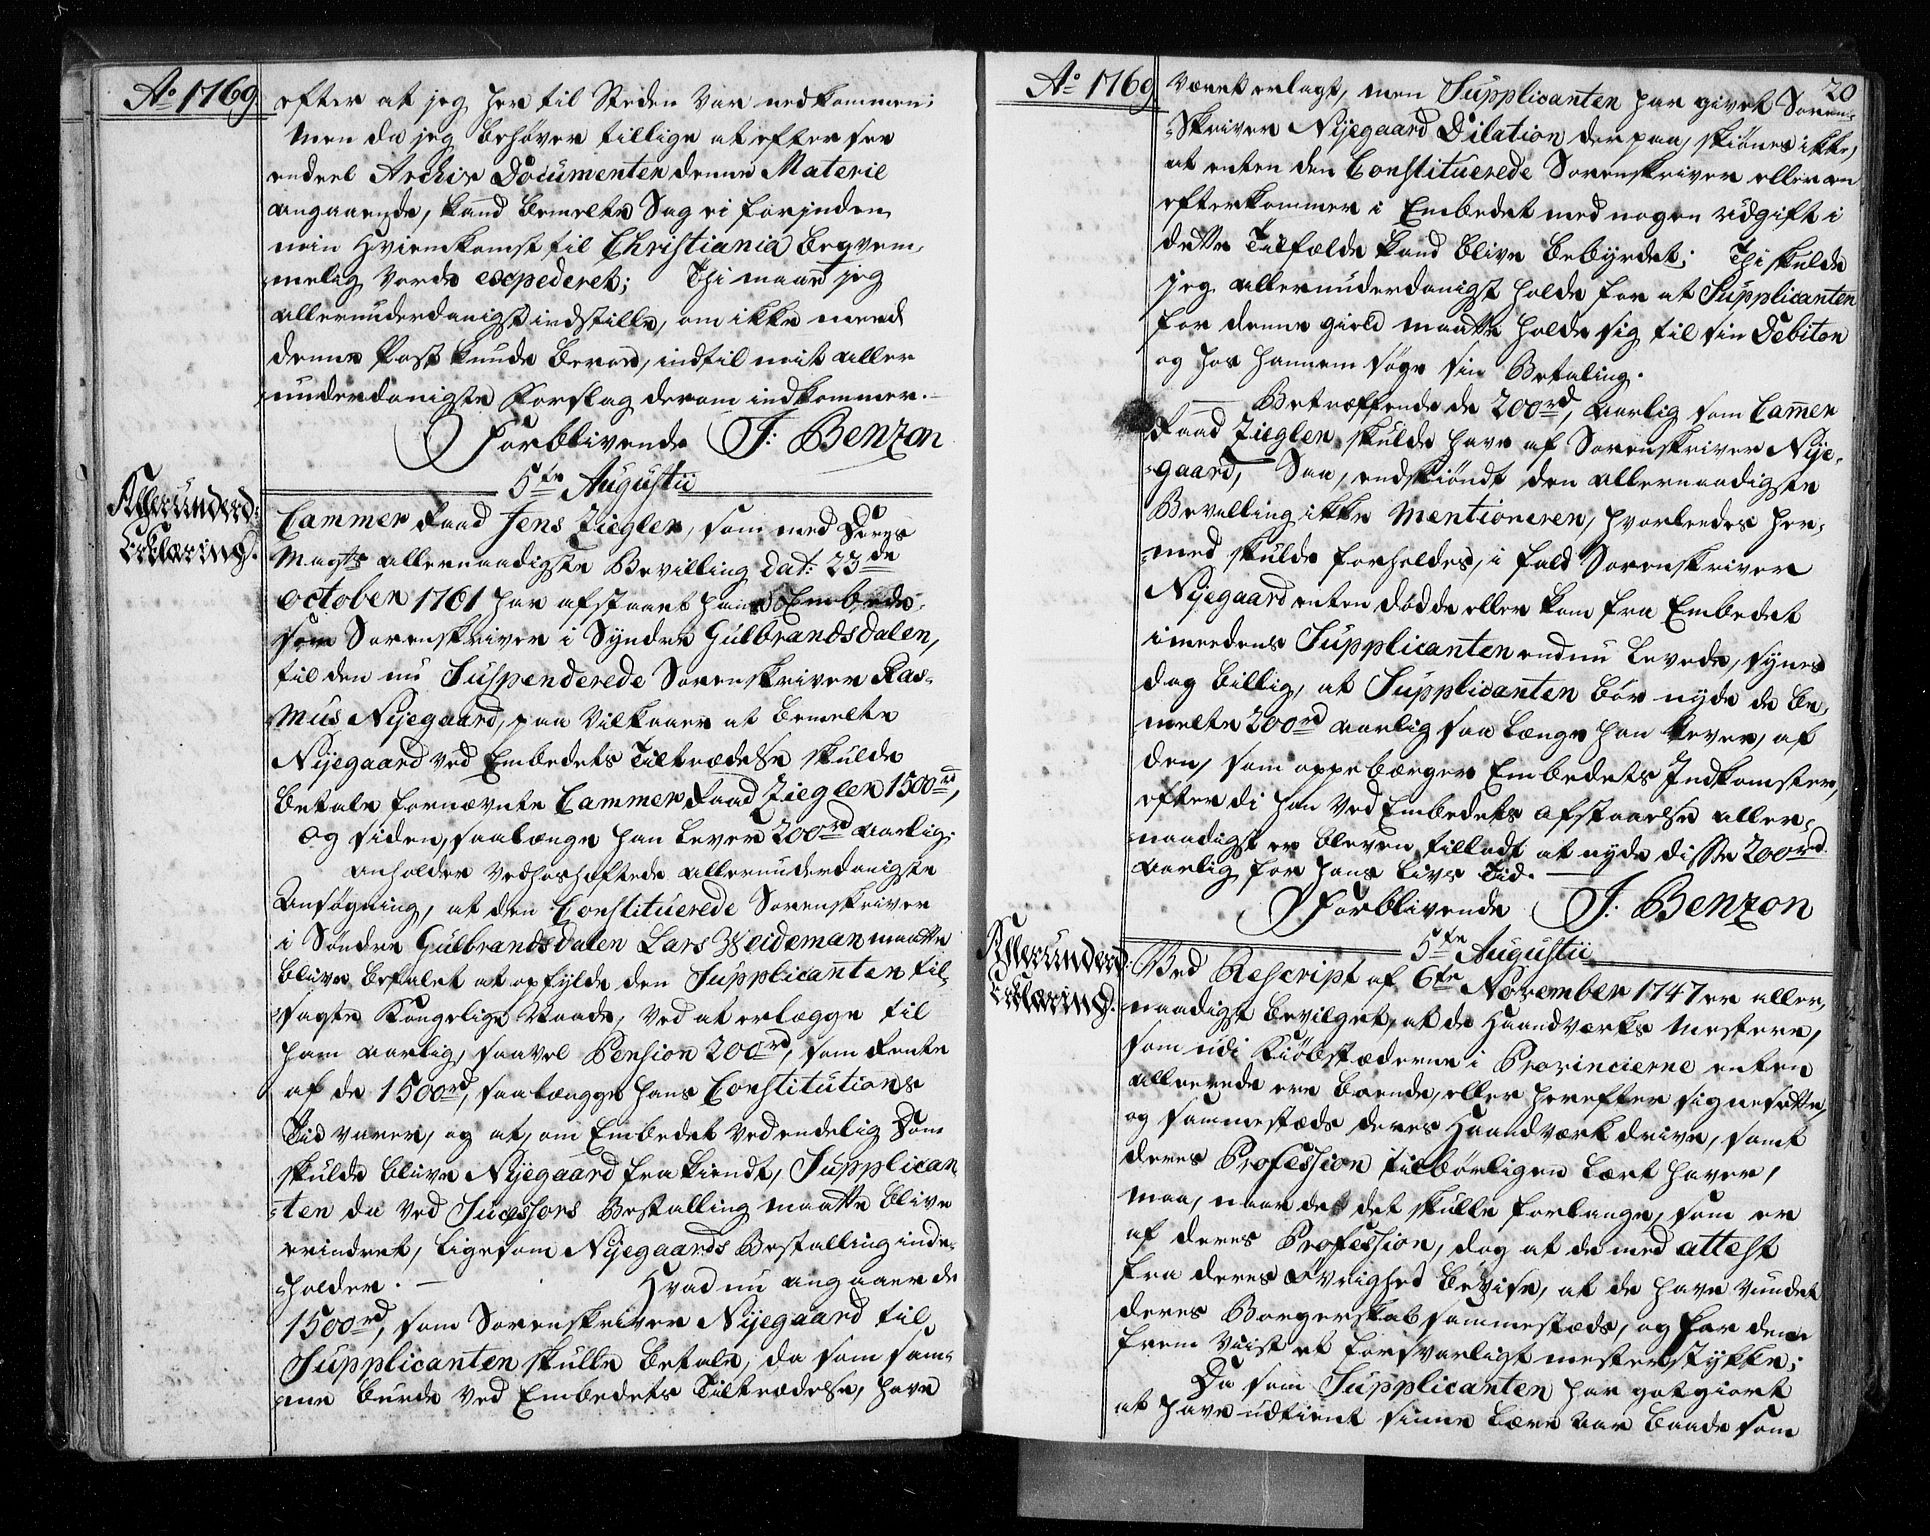 Ao 1769.
efter at jeg her til Steden var nedkommen;
Men da jeg behøver tillige at efter see
endeel Archiv Documenter denne Materie
angaaende, kand bemelte Sag ei forinden
min Hiemkomst til Christiania beqvem-
melig vorde expederet; Thi maae jeg
allerunderdanigst indstille, om ikke med
denne Post kunde beroe, indtil mit aller
underdanigste Forslag derom indkommer.
Forblivende J: Benzon
5te Augustii
Allerunderd:
Erklæring.
Cammer Raad Jens Ziegler, som med Deres
Mayts allernaadigste Bevilling dat: 23de
October 1761 har afstaaet hans Embede
som Sorenskriver i Syndre Gulbrandsdalen,
til den nu Suspenderede Sorenskriver Ras-
mus Nyegaard, paa Vilkaar at bemelte
Nyegaard ved Embedets Tiltrædelse skulde
betale fornævnte Cammer Raad Ziegler 1500rd,
og siden, saalænge han lever 200rd aarlig;
anholder vedhæftede allerunderdanigste
Ansøgning, at den Constituerede Sorenskriver
i Søndre Gulbrandsdalen Lars Weideman maatte
blive befalet at opfylde den Supplicanten til-
sagte Kongelige Naade, ved at erlægge til
ham aarlig, saavel Pension 200rd, som Rente
af de 1500rd, saalænge hans Constitutions
Tid varer, og at, om Embedet ved endelig Dom
skulde blive Nyegaard fra kiendt, Supplican-
ten da ved Sucessors Bestalling maatte blive
erindret, ligesom Nyegaards Bestalling inde-
holder. Hvad nu angaaer de
1500rd, som Sorenskriver Nyegaard til
Supplicanten skulle betale, da som sam-
me burde ved Embedets Tiltrædelse, have
Ao 1769
20
været erlagt, men Supplicanten har givet Soren-
Skriver Nyegaard Dilation derpaa, skiønes ikke,
at enten den Constituerede Sorenskriver eller en
efterkommer i Embedet med nogen udgift i
dette Tilfælde kand blive bebyrdet; Thi skulde
jeg allerunderdanigst holde for at Supplicanten
for denne gield maatte holde sig til sin Debitor
og hos hannem søge sin Betaling.
Betræffende de 200rd, aarlig som Cammer
Raad Ziegler skulde have af Sorenskriver Nye-
gaard, Saa, endskiøndt den allernaadigste
Bevilling ikke Mentionerer, hvorledes her-
med skulde forholdes, i fald Sorenskriver
Nyegaard enten døde eller kom fra Embedet
imedens Supplicanten endnu levede, synes
dog billig, at Supplicanten bør nyde de be-
melte 200rd aarlig saa længe han lever, af
den, som oppebærger Embedets Indkomster,
efterdi han ved Embedets afstaaelse aller-
naadigst er bleven tilladt at nyde disse 200rd
aarlig for hans Livs Tid.
Forblivende J: Benzon
5te Augustii
Allerunderd:
Erklæring.
Ved Rescript af 6te November 1747 er aller-
naadigst bevilget, at de Haandværks Mestere,
som udi Kiøbstæderne i Provincierne enten
allerede ere boende, eller herefter sig nesætte,
og sammestæds deres Haandværk drive, samt
deres Profession tilbørligen lært haver,
maa, naar de det skulle forlange, som er
af deres Profession, dog at de med attest
fra deres Øvrighed bevise, at de have vundet
deres Borgerskab sammestæds, og har der
frem viist et forsvarligt mesterstykke;
Da som Supplicanten har godtgiort
at have udtient sinne Lære Aar baade som